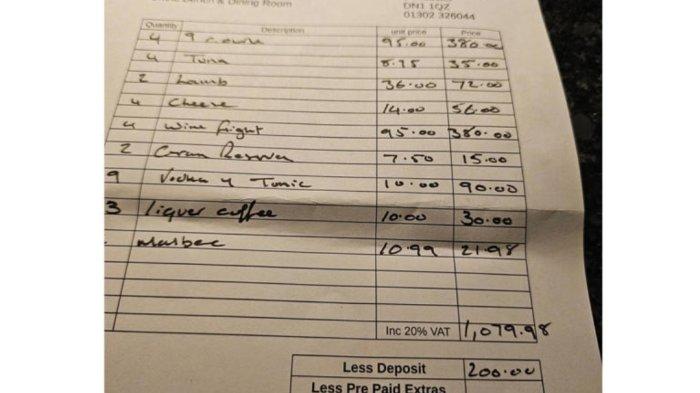 & Dining Room
DN1 1QZ
01302 326044
Quantity Description unit price Price
4 9 Course 95.00 380.00
4 Tuna 8.75 35.00
2 Lamb 36.00 72.00
4 Cheese 14.00 56.00
4 Wine flight 95.00 380.00
2 7.50 15.00
9 Vodka & Tonic 10.00 90.00
3 liquer coffee 10.00 30.00
malbec 10.99 21.98
Inc 20% VAT 1,079.98
Less Deposit 200.00
Less Pre Paid Extras